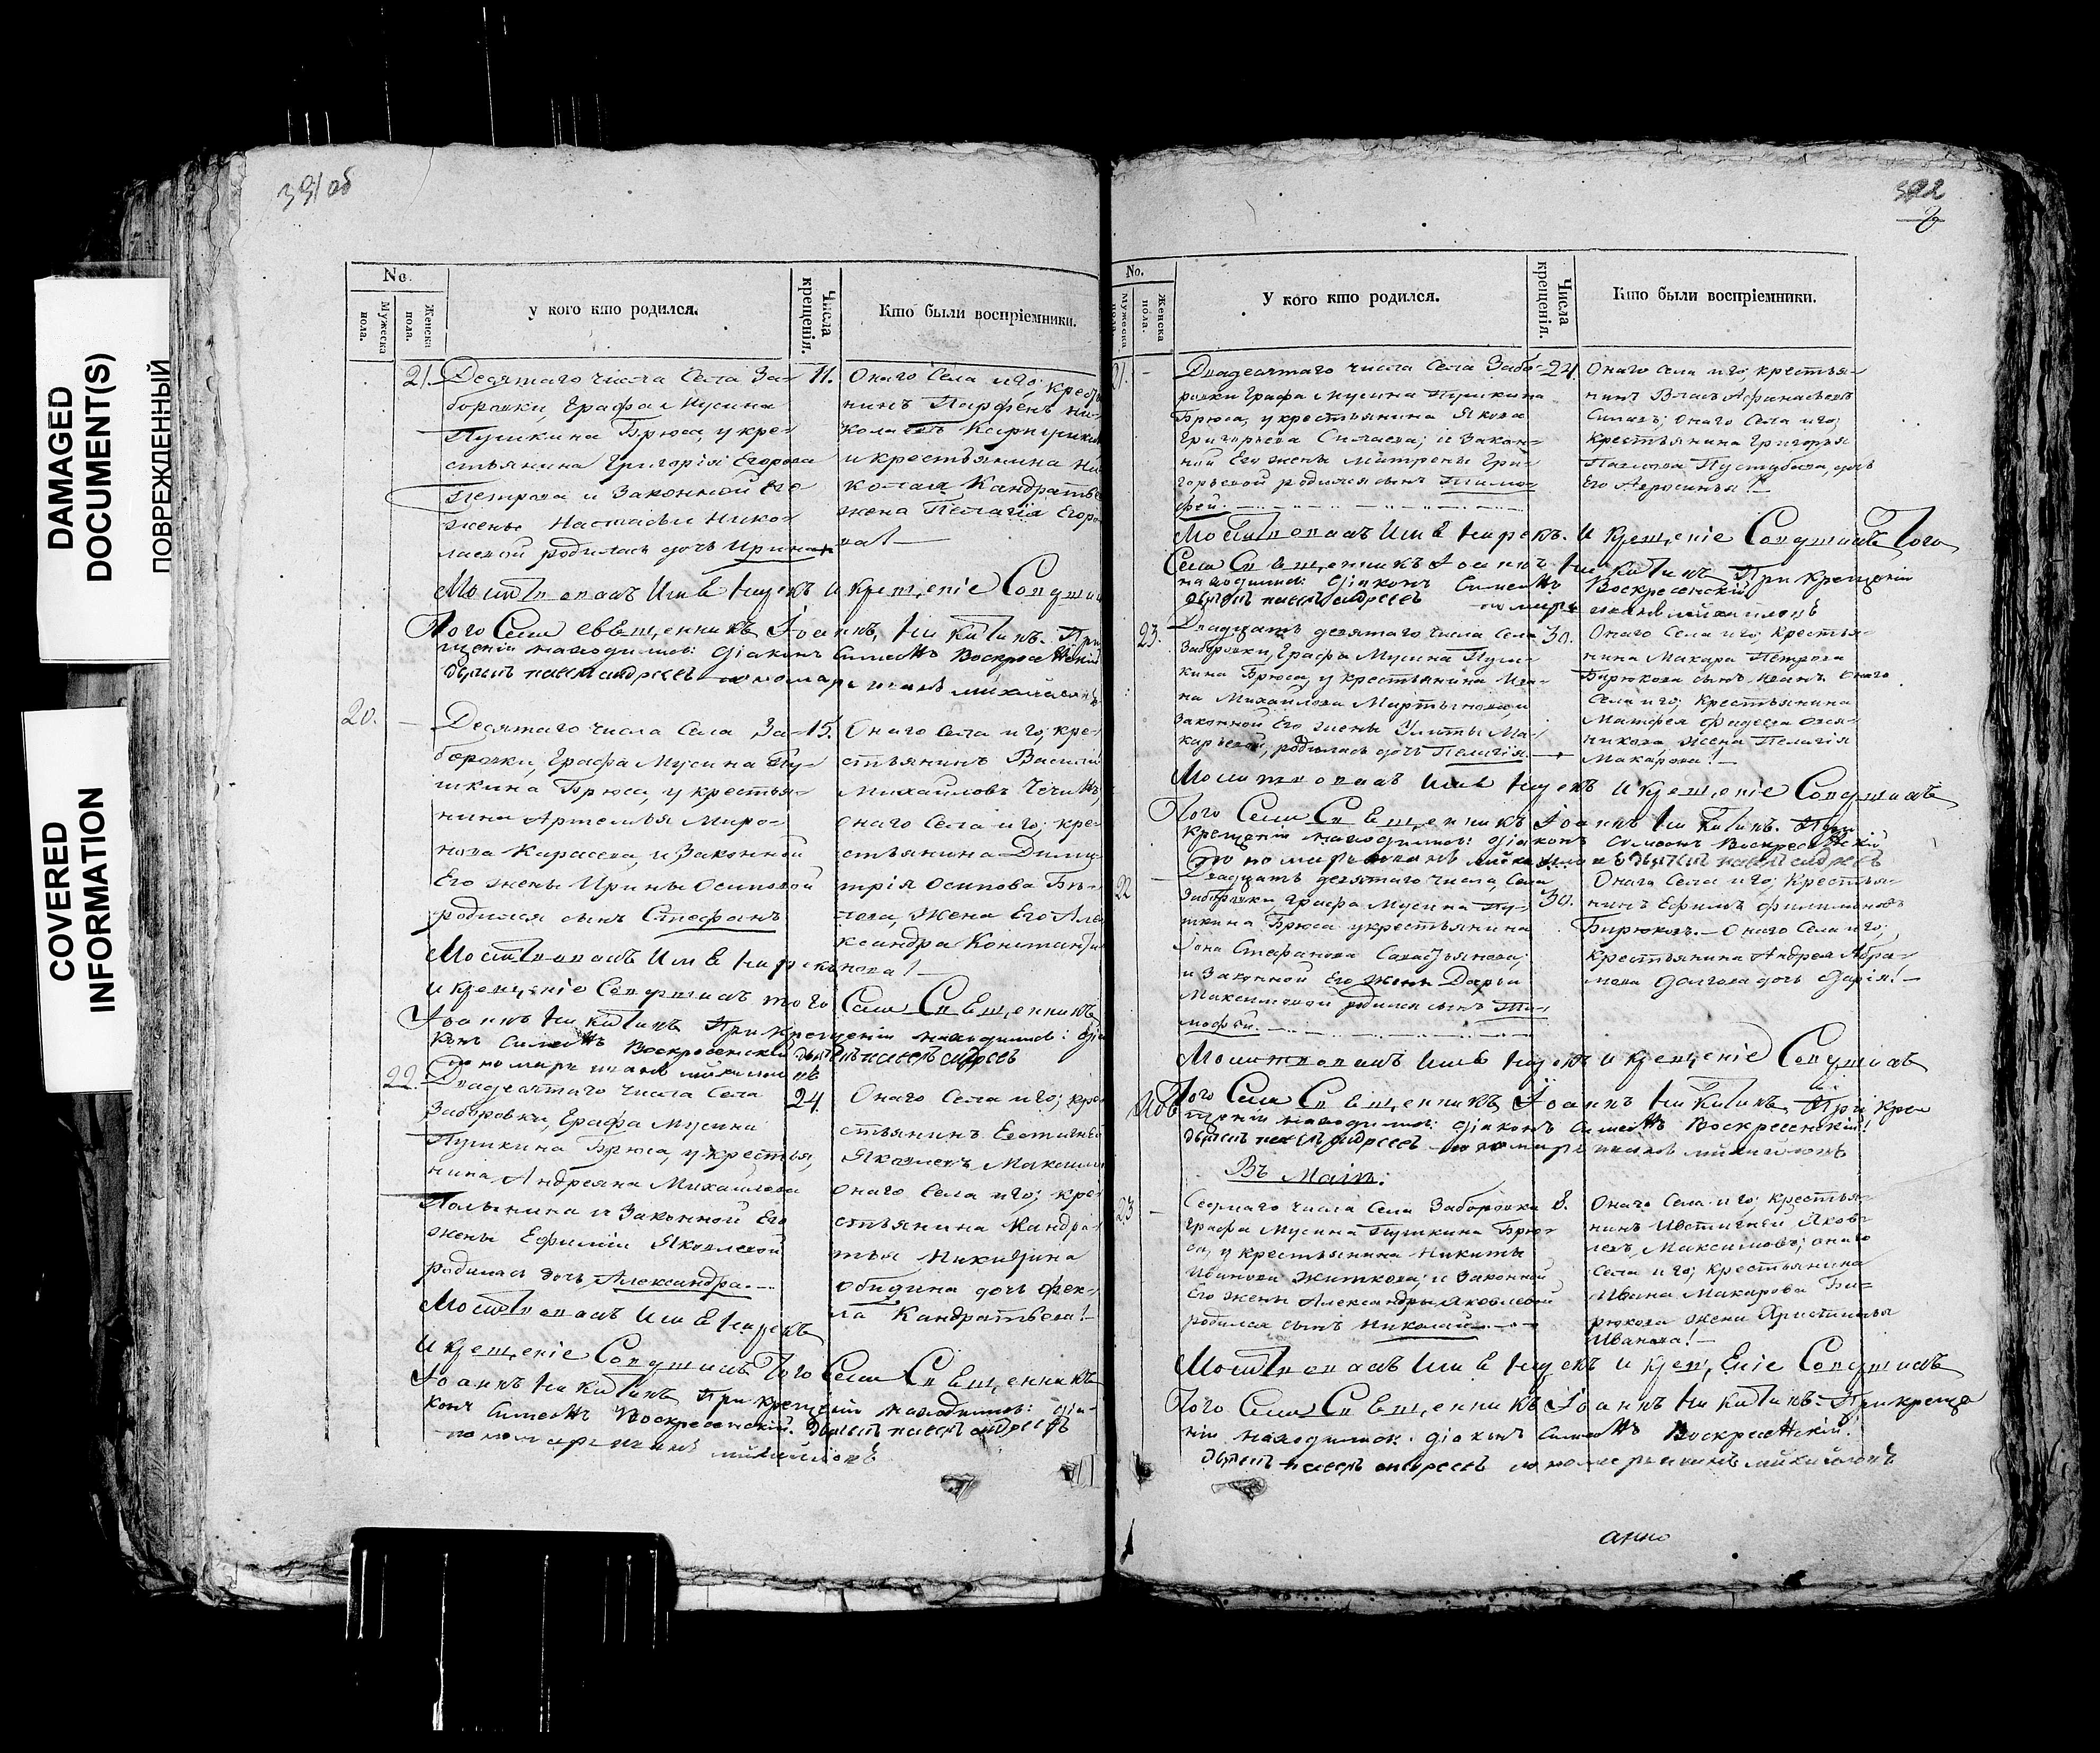 DAMAGED
DOCUMENT(S)
ПОВРЕЖДЕННЫЙ
COVERED
INFORMATION
391 об
No.
Мужеска пола.
Женска пола.
У кого кто родился.
Числа крещенія.
Кто были воспріемники.
21.
Десятаго числа Села За-
боровки, Графа Мусина
Пушкина Брюса, у кре-
стьянина Григорія Егорова
Петрова и Законной Его
жены Настасьи Нико-
лаевой родилась дочь Ирина
11.
Онаго Села и го; кресть
нинъ Парфенъ Ни-
колаевъ
и крестьянина Ни
колая Кандратье
жена Пелагія Егоро
ва!
Молитвовалъ Имя Нарекъ и крещеніе Соверши
Того Села Священникъ Іоаннъ Никитинъ. При
щеніи находились: Діаконъ Симеонъ Воскресенскій
дьячекъ павелъ андреевъ пономарь иванъ михайловъ
20.
Десятаго числа Села За-
боровки, Графа Мусина Пу-
шкина Брюса, у крестья-
нина Артемья Миро-
нова Карасева, и Законной
Его жены Ирины Осиповой
родился сынъ Стефанъ
15.
Онаго Села и го; кре-
стьянинъ Василій
Михайловъ
онаго Села и го; кре-
стьянина Дими-
трія Осипова Бѣ-
лева, жена Его Але
ксандра Константи
нова!
Молитвовалъ Имя Нарекъ
и крещеніе Совершилъ того Села Священникъ
Іоаннъ Никитинъ При Крещеніи находились: Діа
конъ Симеонъ Воскресенскій дьячекъ павелъ андреевъ
пономарь иванъ михайловъ
22.
Двадесятаго числа Села
Заборовки, Графа Мусина
Пушкина Брюса, у крестья,
нина Андреяна Михайлова
Палынина и Законной Его
жены Ефиміи Яковлевой
родилась дочь Александра.
24.
Онаго Села и го; кре
стьянинъ Евстигней
Яковлевъ Максимо
онаго Села и го; кре
стьянина Кандра-
тья Никитина
Обидина дочь Фек-
ла Кандратьева!
Молитвовалъ Имя Нарекъ
и крещеніе Совершилъ Того Села Священникъ
Іоаннъ Никитинъ При крещеніи находились: діа-
конъ Симеонъ Воскресенскій. дьячекъ павелъ андреевъ
пономарь иванъ михайловъ
392
No.
Мужеска
Женска пола.
У кого кто родился.
Числа крещенія.
Кто были воспріемники.
21.
Двадесятаго числа Села Забо-
ровки Графа Мусина Пушкина
Брюса, у крестьянина Якова
Григорьева Силаева; и Закон-
ной Его жены Матрены Гри-
горьевой родился сынъ Тимо-
фей.
24.
Онаго Села и го; крестья-
нинъ Власъ Афанасьевъ
Силаевъ; онаго Села и го;
Крестьянина Григорья
Павлова Пустубаева, дочь
Его Авросинья!
Молитвовалъ Имя Нарекъ. И крещеніе Совершилъ Того
Села Священникъ Іоаннъ Никитинъ При крещеніи
находились: Діаконъ Симеонъ Воскресенскій
дьячекъ павелъ андреевъ пономарь иванъ михайловъ
23.
Двадцать девятаго числа Села
Заборовки, Графа Мусина Пуш-
кина Брюса, у крестьянина Ива-
на Михайлова Мартынова, и
Законной Его жены Улиты Ма-
карьевой, родилась дочь Пелагія.
30.
Онаго Села и го; крестья-
нина Макара Петрова
Бирюкова сынъ Иванъ Онаго
Села и го; крестьянина
Матфея Фадеева Овся-
никова, жена Пелагія
Макарова!
Молитвовалъ Имя Нарекъ и крещеніе Совершилъ
Того Села Священникъ Іоаннъ Никитинъ. При
крещеніи находились: діаконъ Симеонъ Воскресенскій
пономарь иванъ михайловъ дьячекъ павелъ андреевъ
22
Двадцать девятаго числа, Села
Заборовки, Графа Мусина Пу-
шкина Брюса у крестьянина
Іона Стефанова
и Законной Его жены Дарьи
Максимовой родился сынъ Ти-
мофей.
30.
Онаго Села и го; крестья-
нинъ Ефимъ Филимоновъ
Бирюковъ. — Онаго Села и го;
Крестьянина Андрея Абра-
мова Долгова дочь Дарія!
Молитвовалъ Имя Нарекъ и крещеніе Совершилъ
Того Села Священникъ Іоаннъ Никитинъ, При кре
щеніи находились: діаконъ Симеонъ Воскресенскій!
дьячекъ павелъ андреевъ пономарь иванъ михайловъ
Въ Маіи:
23
Седмаго числа Села Заборовки
Графа Мусина Пушкина Брю-
са, у крестьянина Никиты
Иванова Житкова; и Законной
Его жены Александры Яковлевой
родился сынъ Николай.
8.
Онаго Села и го; крестья-
нинъ Ивстигней Яков-
левъ, Максимовъ; онаго
Села и го; крестьянина
Ивана Макарова Би-
рюкова жена Христинья
Иванова!
Молитвовалъ Имя Нарекъ и крещеніе Совершилъ
Того Села Священникъ Іоаннъ Никитинъ. При креще
ніи находились: діаконъ Симеонъ Воскресенскій!
дьячекъ павелъ андреевъ пономарь иванъ михайловъ